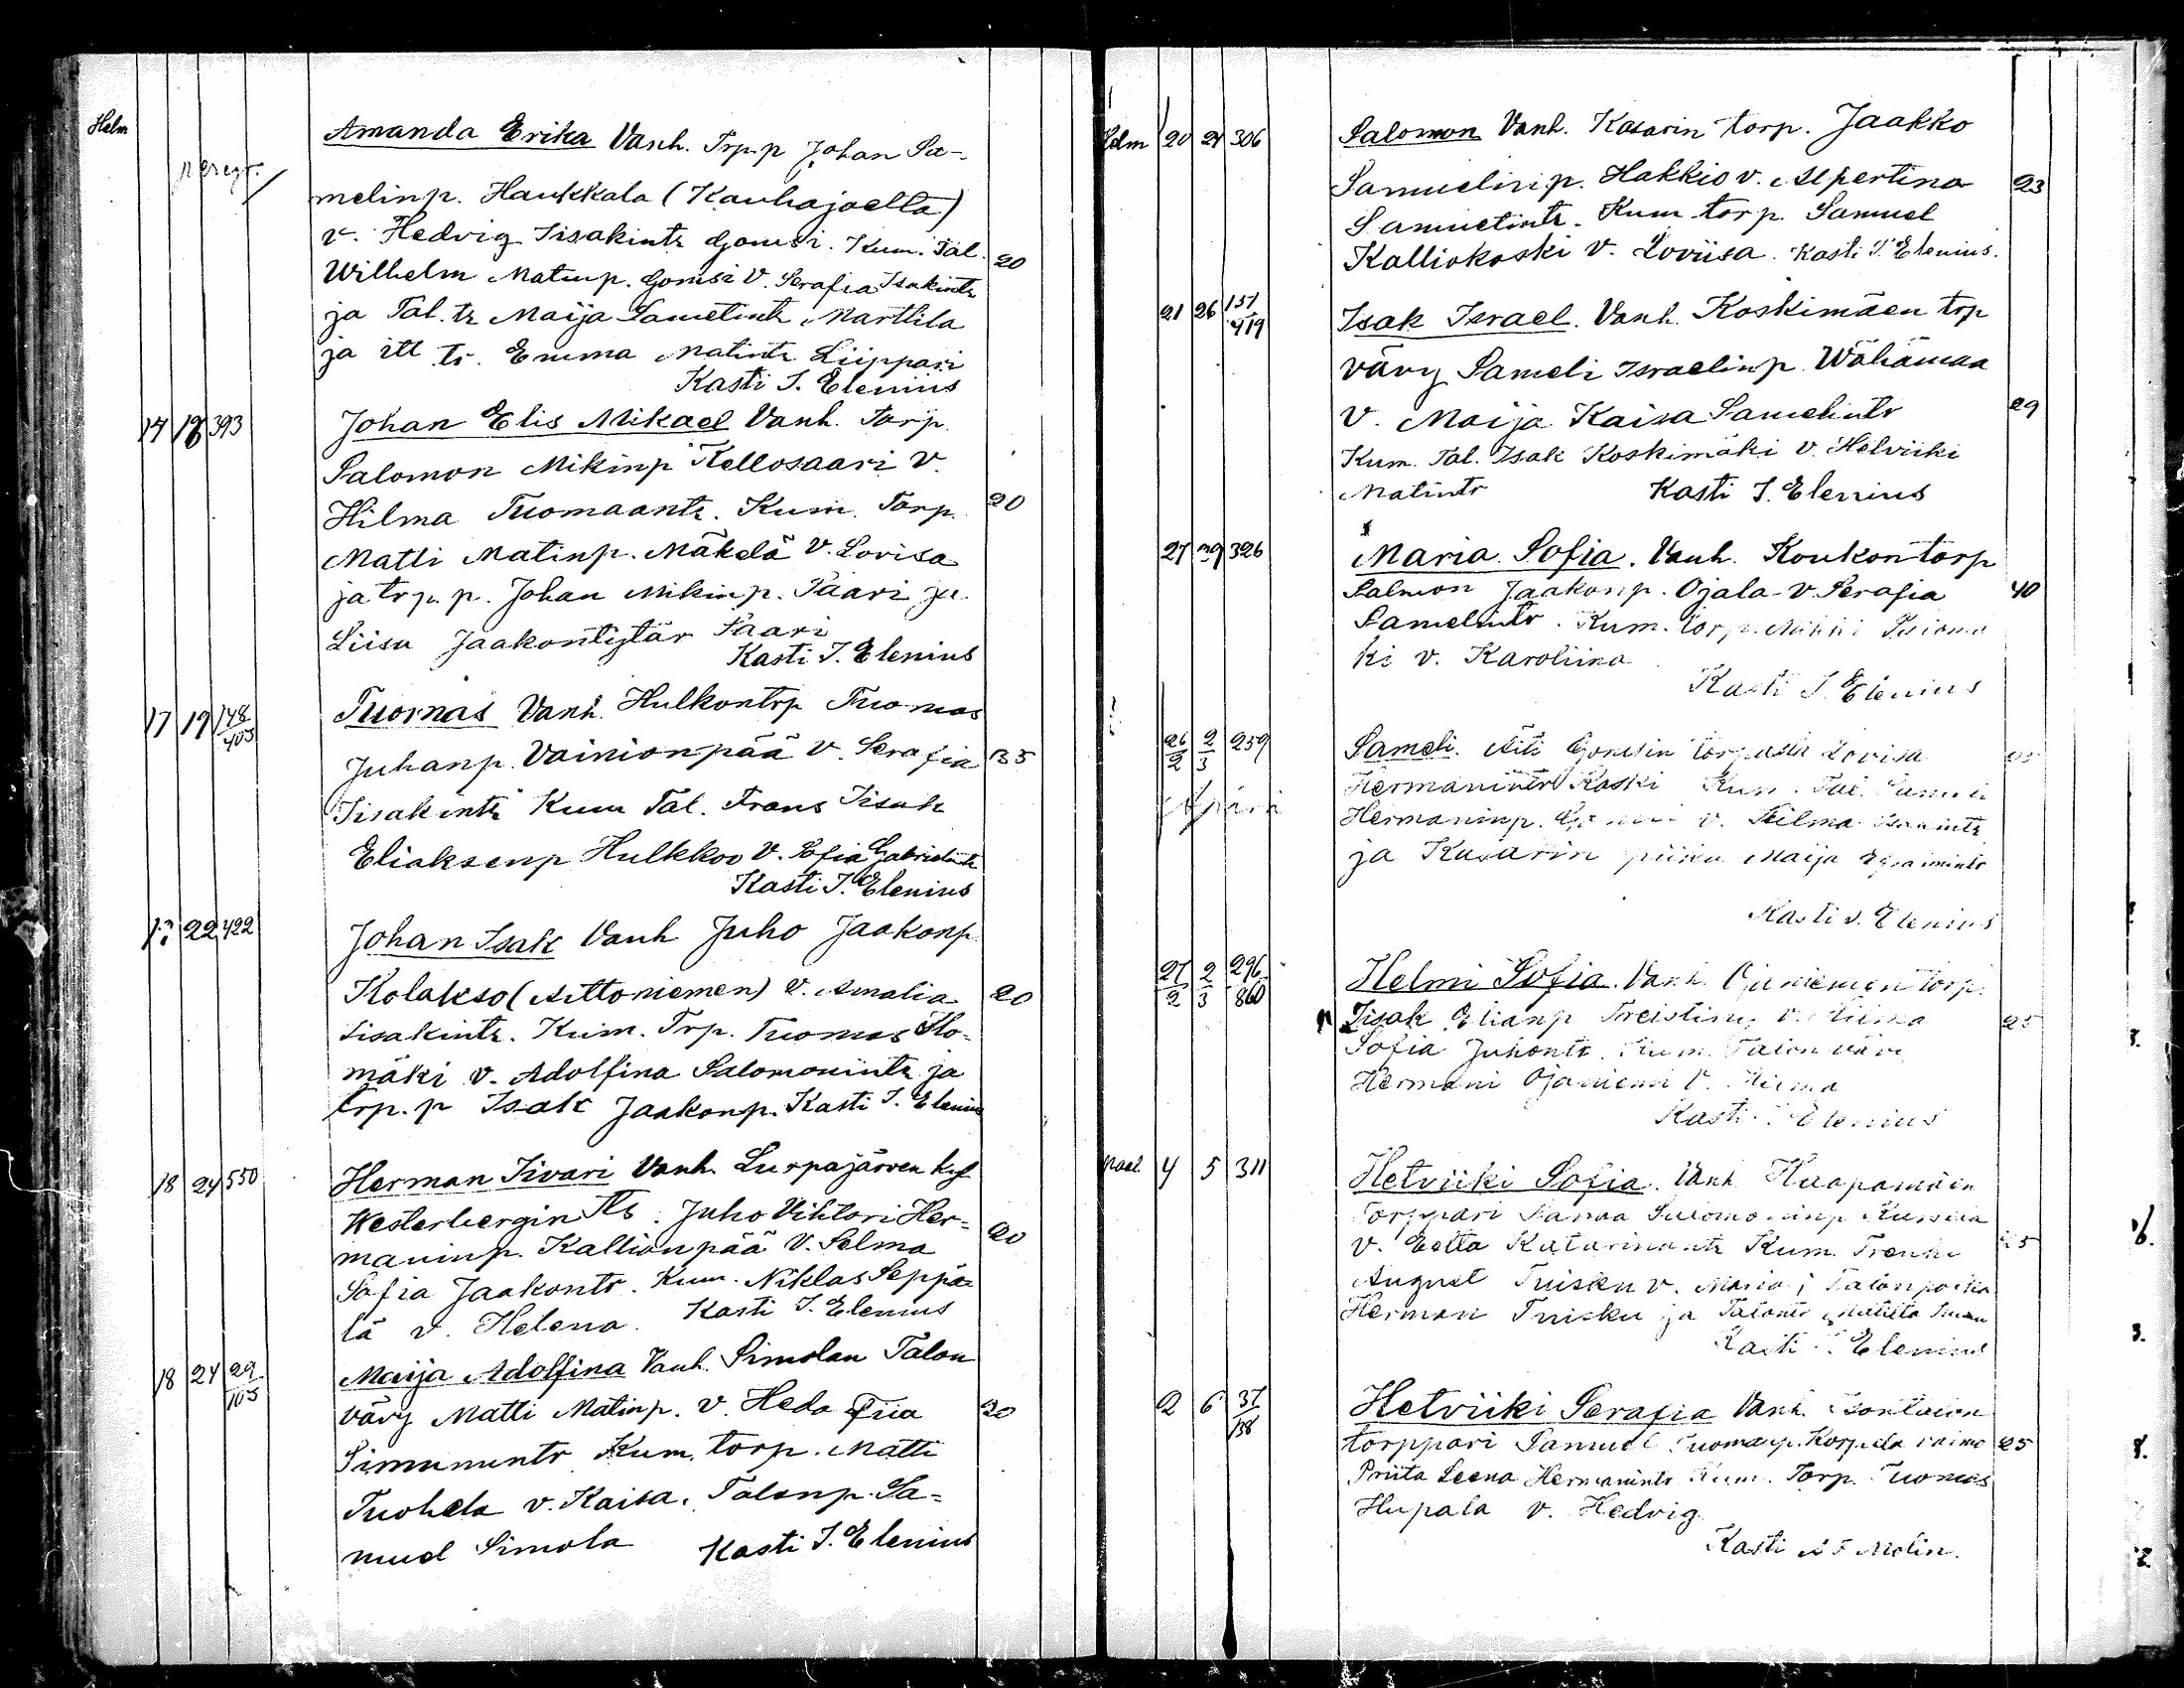 Helm
Amanda Erika Vanh. Trp.p Johan Sa-
melinp. Haukkala (Kauhajoelta)
v. Hedvig Iisakintr Gomsi. Kum. Tal. 20
Wilhelm Matinp. Gomsi v. Serafia Isakintr
ja Tal. tr Maija Sametintr Marttila
ja itt tr. Emma Matintr Liippari
Kasti I. Elenius
17 18 393 Johan Elis Mikael Vanh. Torp.
Salomon Mikinp Kellosaari v.
Hilma Tuomaantr. Kum. Torp. 20
Matti Matinp. Mäkelä v. Lovisa
ja trp. p. Johan Mikinp. Saari ja
Liisa Jaakontytär Saari
Kasti I. Elenius
17 19 148/405 Tuomas Vanh. Hulkontrp Tuomas
Juhanp. Vainionpää v. Serafia 35
Iisakintr Kum Tal. Frans Iisak
Eliaksenp Hulkkoo v. Sofia Gabrielintr
Kasti I. Elenius
22 422 Johan Isak Vanh Juho Jaakonp.
Kolakso (Aittoniemen) v. Amalia 20
Iisakintr. Kum. Trp. Tuomas Ho-
mäki v. Adolfina Salomonintr ja
trp. p Isak Jaakonp. Kasti I. Elenius
18 24 550 Herman Iivari Vanh. Lurpajärven kyl
Westerbergin Its. Juho Vihtori Her=
maninp. Kallionpää v. Selma 20
Sofia Jaakontr. Kum. Niklas Seppä=
lä v. Helena. Kasti I. Elenius
18 24 29/105 Maija Adolfina Vanh. Simolan Talon
vävy Matti Matinp. v. Heda Fiia 30
Simunintr Kum. torp. Matti
Tuohela v. Kaisa, Talonp. Sa=
muel Simola Kasti I. Elenius
Helm 20 21 306 Salomon Vanh. Kasarin torp. Jaakko
Samuelinp. Hakkio v. Alpertina 23
Samuelintr. Kum torp. Samuel
Kalliokoski v. Loviisa. Kasti I. Elenius.
21 26 151/419 Isak Israel. Vanh. Koskimäen trp
vävy Sameli Israelinp. Wähämaa
v. Maija Kaisa Samelintr 29
Kum. Tal. Isak Koskimäki v. Helviiki
Matintr Kasti I. Elenius
27 29 326 Maria Sofia. Vanh. Koukontorp
Salmon Jaakonp. Ojala v. Serafia 40
Samelintr. Kum. torp.
ki v. Karoliina
Kasti I. Elenius
26/2 2/3 259 Sameli. Äiti Gomsin Lovisa
Hermanintr Koski Kum. Tal. Sameli
Hermaninp. v. Hilma
ja Kasarin piika Maija
Kasti I. Elenius
27/2 2/3 296/860 Helmi Sofia. Vanh. Ojaniemen torp.
Iisak Elianp v. Hilma 25
Sofia Juhontr. Kum. Talon vävy
Hermani Ojaniemi v. Hilma
Kasti I. Elenius
Maal 4 5 311 Hetviiki Sofia. Vanh. Haapamäen
Torppari
v. Eetta Katarina Kum. 25
August Tuisku v. Maria ; Talonpoika
Herman Tuisku ja
Kasti I. Elenius
2 6 37/138 Hetviiki Serafia Vanh.
torppari Samuel Tuomanp. Korpela vaimo 25
Priita Leena Hermanintr Kum. Torp. Tuomas
Hupala v. Hedvig
Kasti A F Molin.